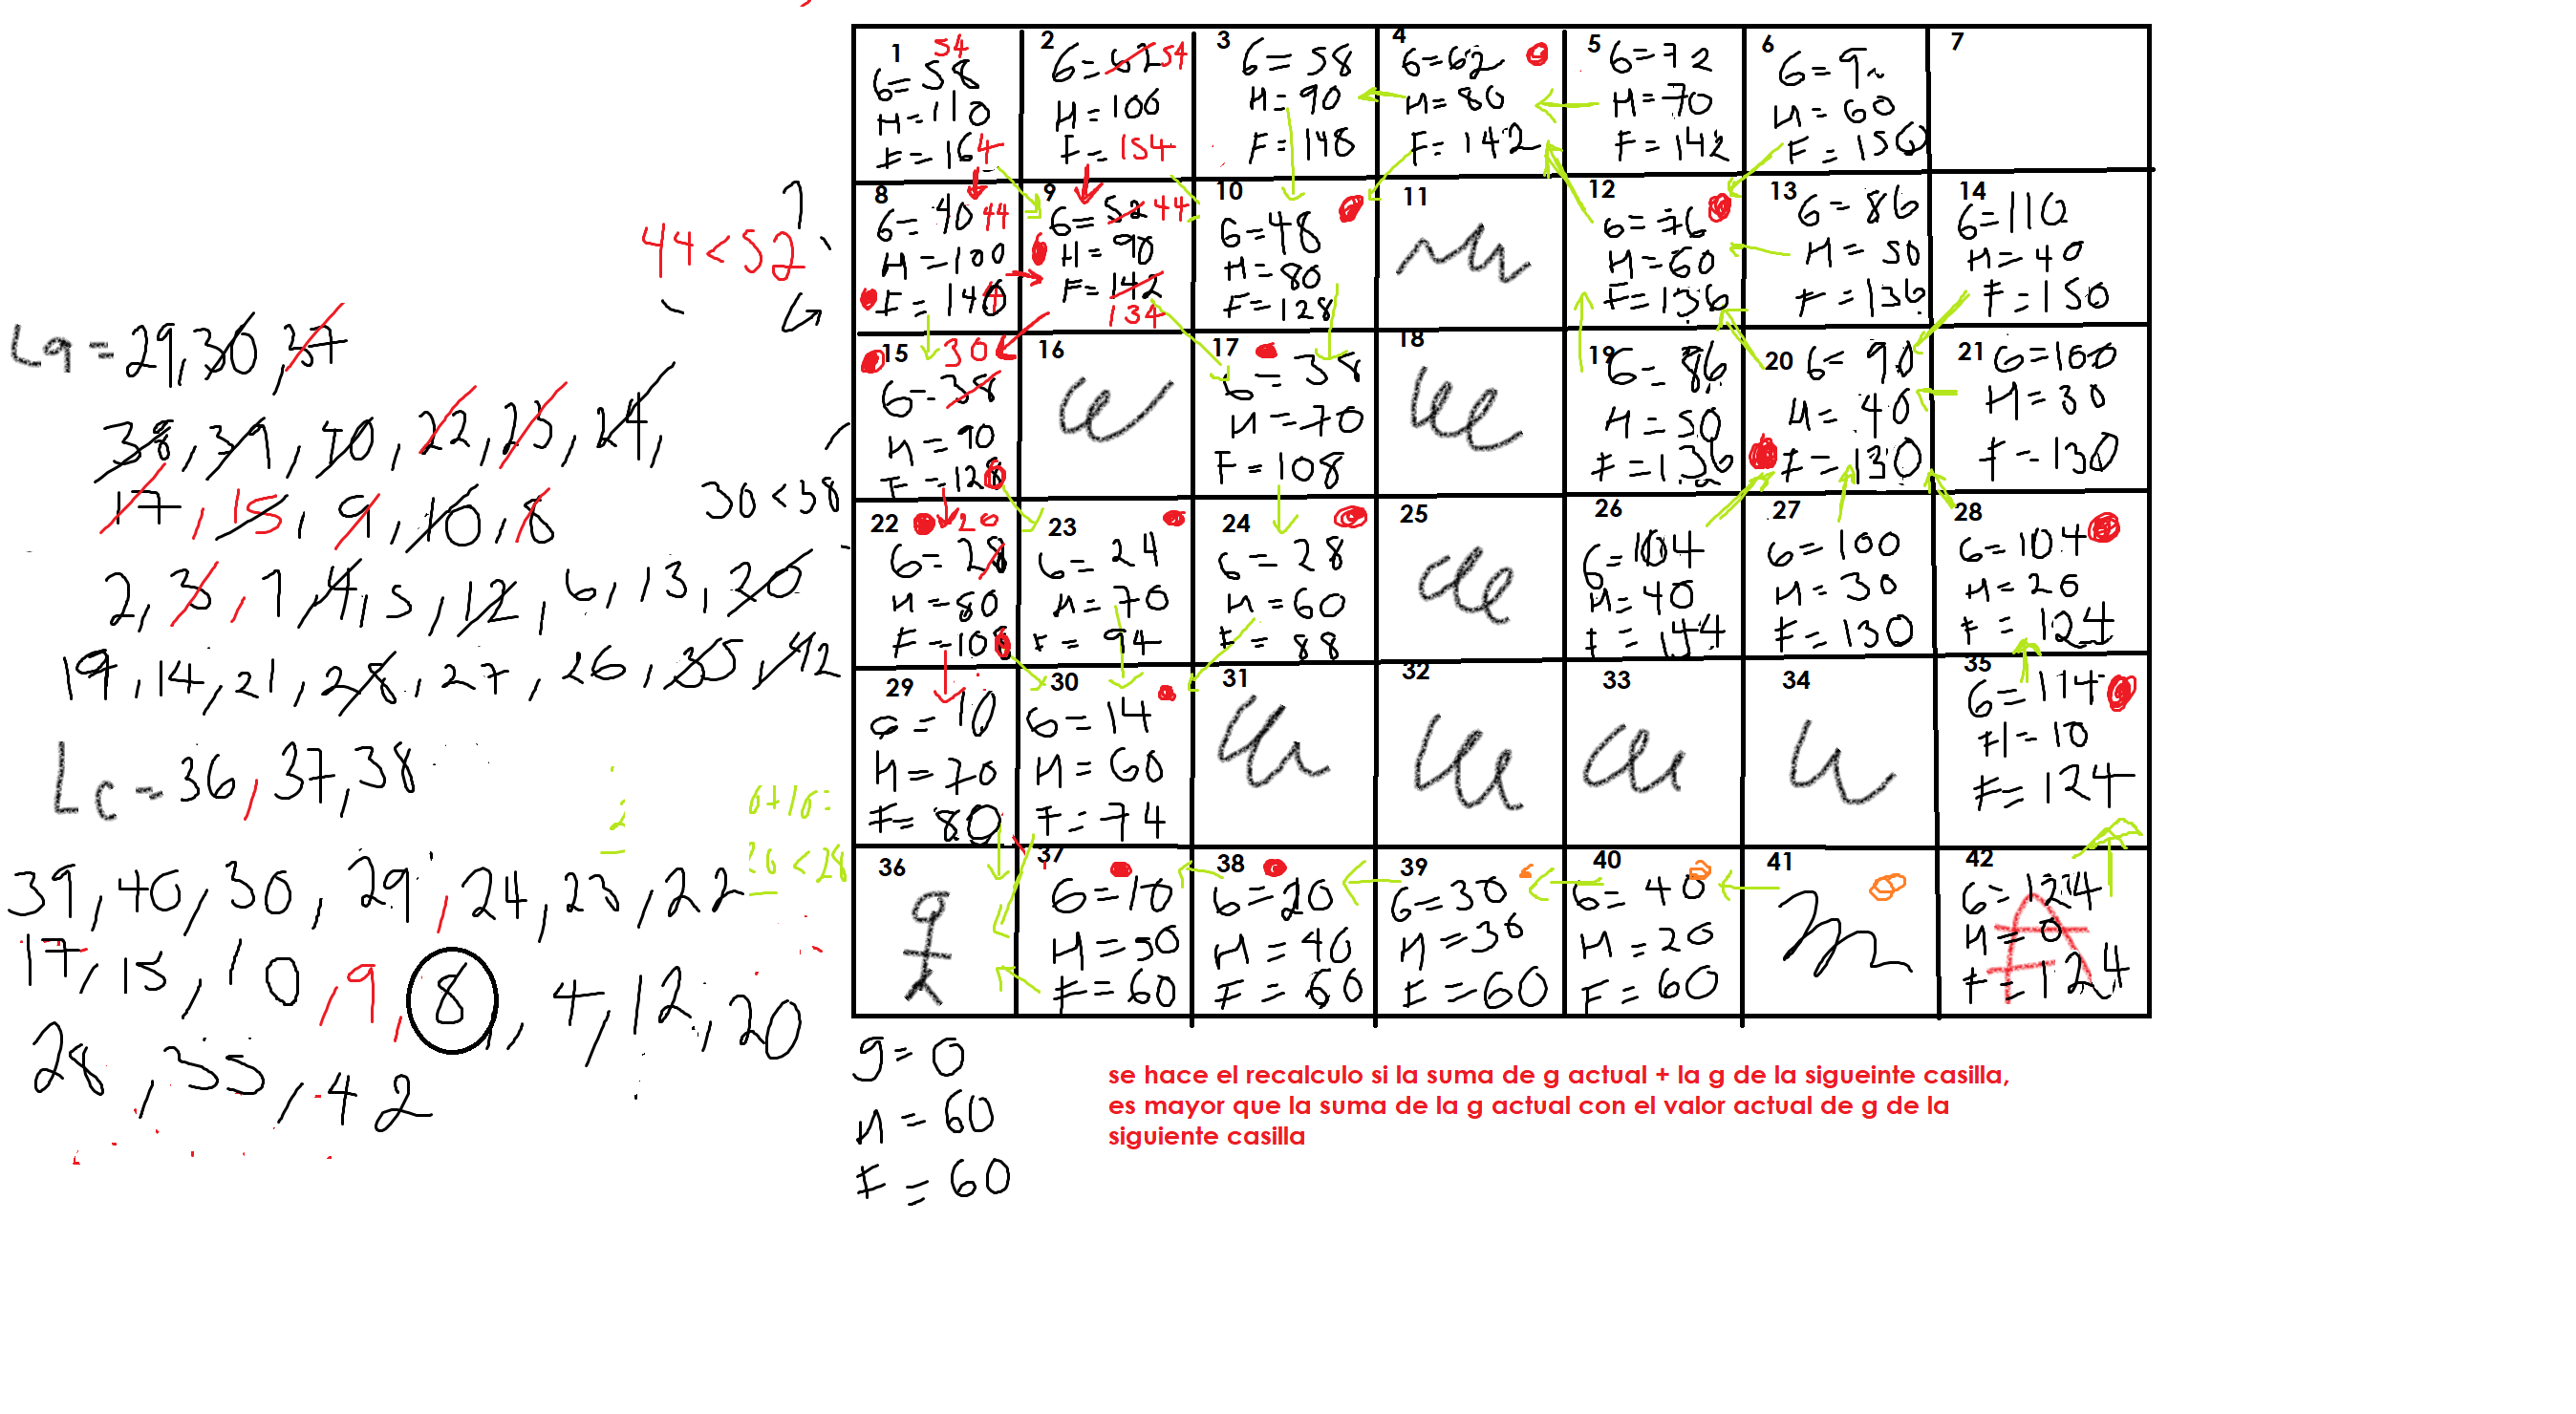 La = 29, 30, 37
38, 39, 40, 22, 23, 24,
17, 15, 9, 10, 8
2, 3, 1, 4, 5, 12, 6, 13, 20
19, 14, 21, 28, 27, 26, 35, 42
Lc = 36, 37, 38
39, 40, 30, 29, 24, 23, 22
17, 15, 10, 9, 8, 4, 12, 20
28, 35, 42
44 < 52
30 < 38
6+16=
26 < 28
1 54
G= 58
H=110
F=164
2
G=52 54
H=100
F=154
3
G=58
H=90
F=148
4
G=62
H=80
F=142
5
G=72
H=70
F=142
6
G=9
H=60
F=156
7
8
G=40 44
H=100
F=144
9
G=52 44
H=90
F=142
134
10
G=48
H=80
F=128
11
12
G=76
H=60
F=136
13
G=86
H=50
F=136
14
G=110
H=40
F=150
15 30
G=38
H=90
F=128
16
17
G=38
H=70
F=108
18
19
G=86
H=50
F=136
20
G=90
H=40
F=130
21
G=100
H=30
F=130
22 20
G=28
H=80
F=108
23
G=24
H=70
F=94
24
G=28
H=60
F=88
25
26
G=104
H=40
F=144
27
G=100
H=30
F=130
28
G=104
H=20
F=124
29
G=10
H=70
F=80
30
G=14
H=60
F=74
31
32
33
34
35
G=114
H=10
F=124
36
37
G=10
H=50
F=60
38
G=20
H=40
F=60
39
G=30
H=30
F=60
40
G=40
H=20
F=60
41
42
G=124
H=0
F=124
g=0
H=60
F=60
se hace el recalculo si la suma de g actual + la g de la sigueinte casilla,
es mayor que la suma de la g actual con el valor actual de g de la
siguiente casilla